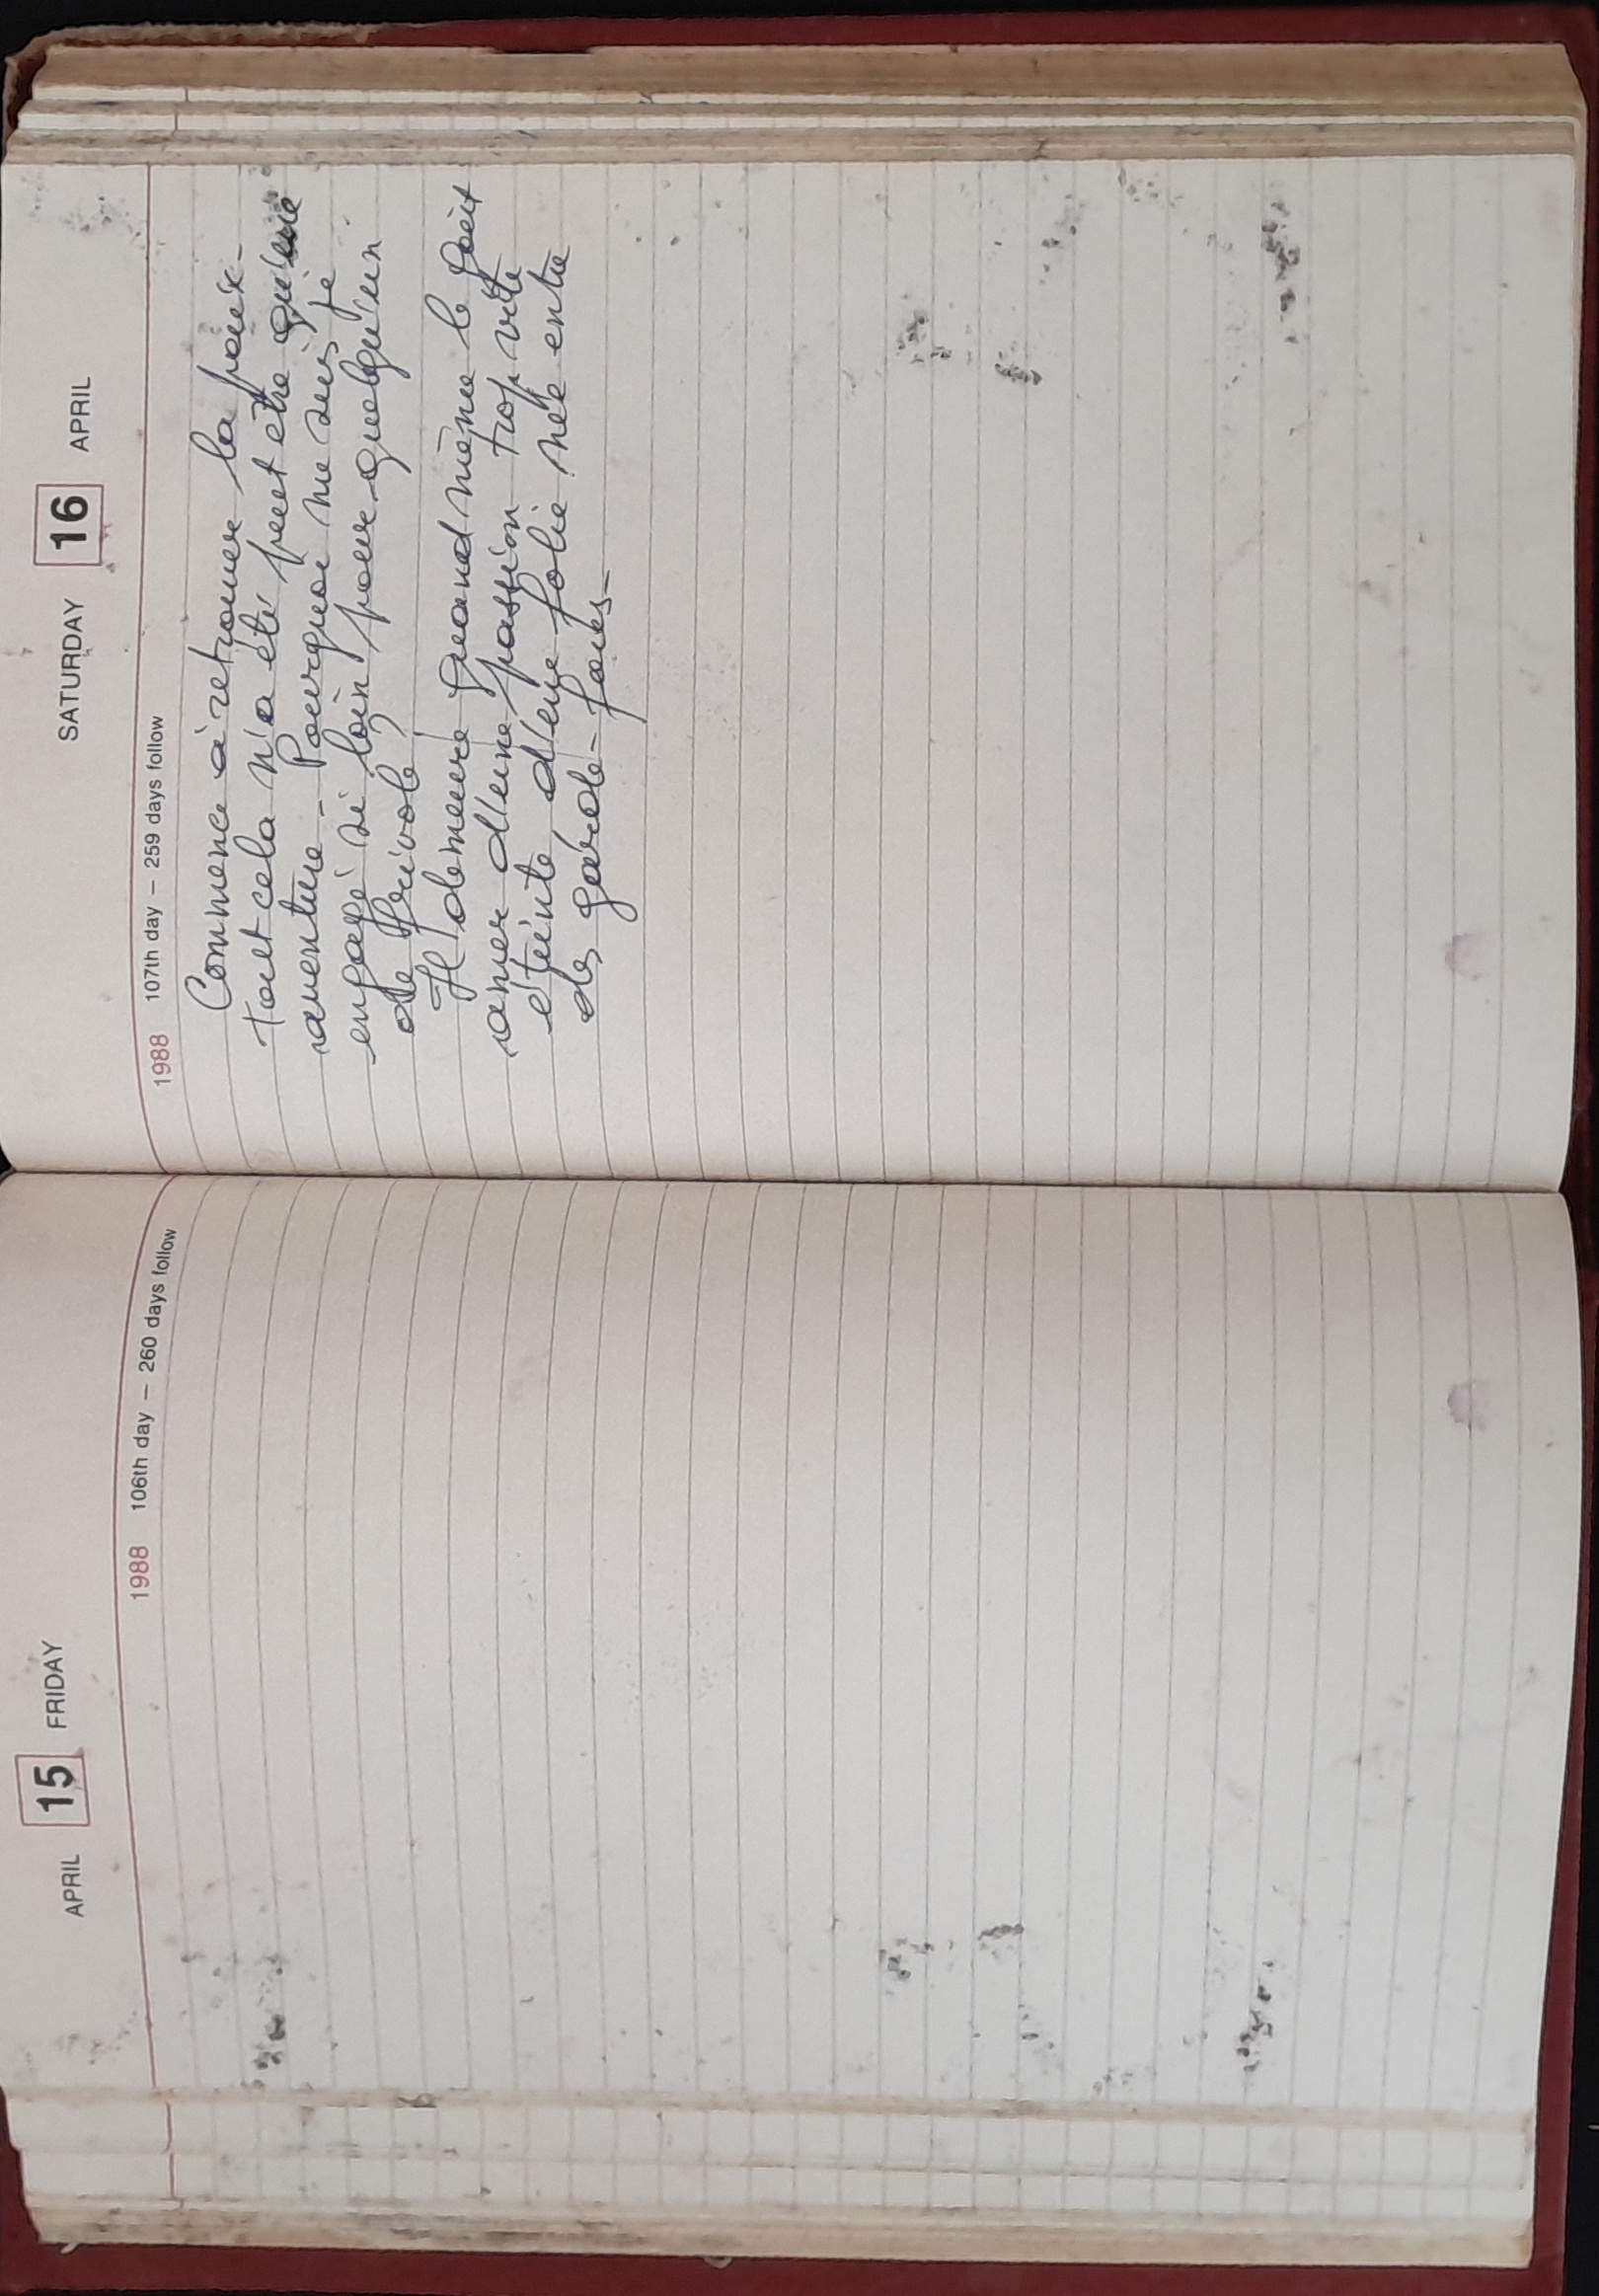 APRIL 15 FRIDAY
1988 106th day – 260 days follow
SATURDAY 16 APRIL
1988 107th day – 259 days follow
Commence à retrouver la paix -
tout cela n'a été peut être qu'une
aventure - Pourquoi me suis je
engagé si loin pour quelqu'un
de frivole ?
Il demeure quand même le goût
amer d'une passion trop vite
éteinte d'une folie née entre
des garde-fous -